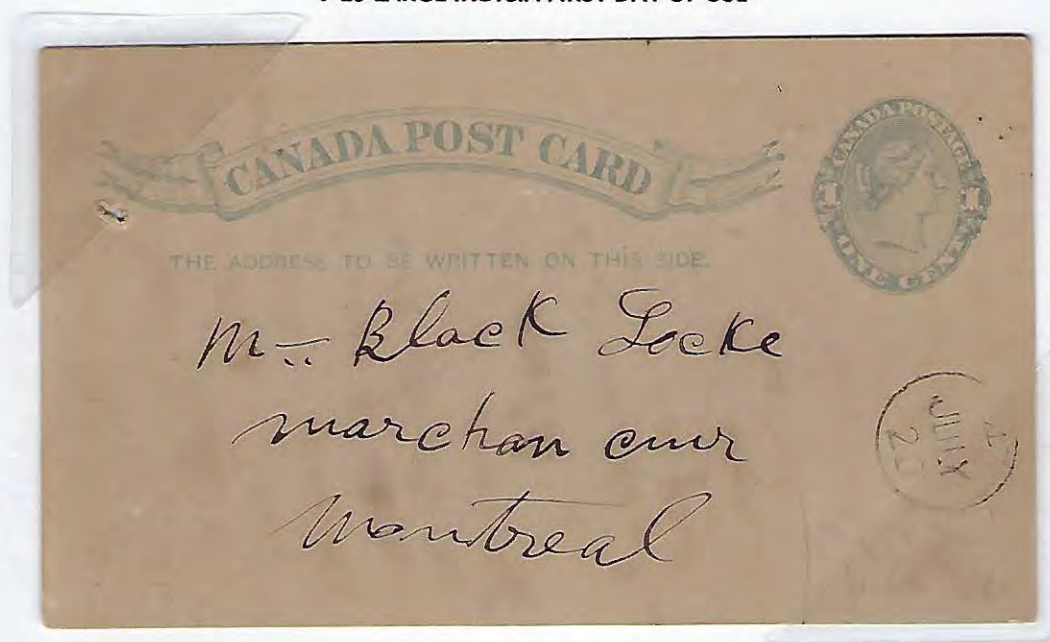 CANADA POST CARD
CANADA POSTAGE
1 1
ONE CENT
THE ADDRESS TO BE WRITTEN ON THIS SIDE.
Mr Black Locke
marchan cuir
Montreal